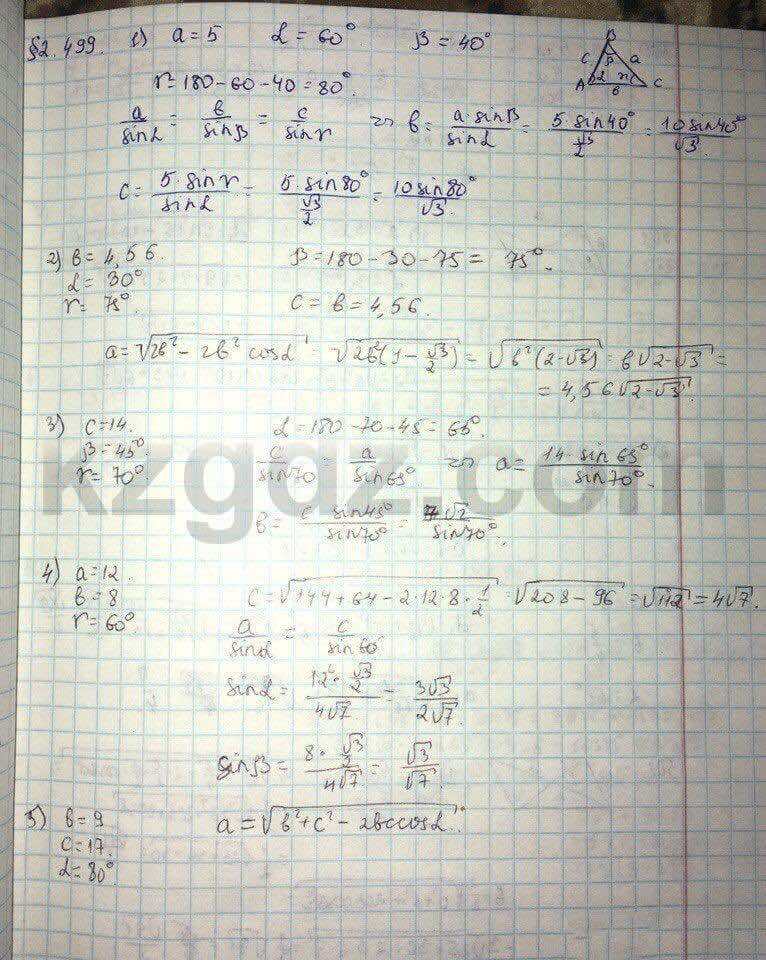 §2.499. 1) a=5 L=60° β=40°
B
c β a
A L γ C
b
γ=180-60-40=80°.
a/sinL = b/sinβ = c/sinγ => b= a·sinβ/sinL = 5·sin40°/(√3/2) = 10sin40°/√3.
c= 5·sinγ/sinL = 5·sin80°/(√3/2) = 10sin80°/√3.
2) b=4,56. β=180-30-75= 75°.
L=30°
γ=75°. c=b=4,56.
a=√(2b²-2b²cosL) = √(2b²(1-√3/2)) = √(b²(2-√3)) = b√(2-√3) =
= 4,56√(2-√3).
3) c=14. L=180-70-45=65°.
β=45°
γ=70°. c/sin70 = a/sin65° => a= 14·sin65°/sin70°.
b= c·sin45°/sin70° = 7√2/sin70°.
4) a=12.
b=8 c=√(144+64-2·12·8·1/2) = √(208-96) = √112 = 4√7.
γ=60°. a/sinL = c/sin60°
sinL= 12·(√3/2)/4√7 = 3√3/2√7.
sinβ= 8·(√3/2)/4√7 = √3/√7.
5) b=9 a=√(b²+c²-2bccosL).
c=17.
L=80°.
kzgdz.com